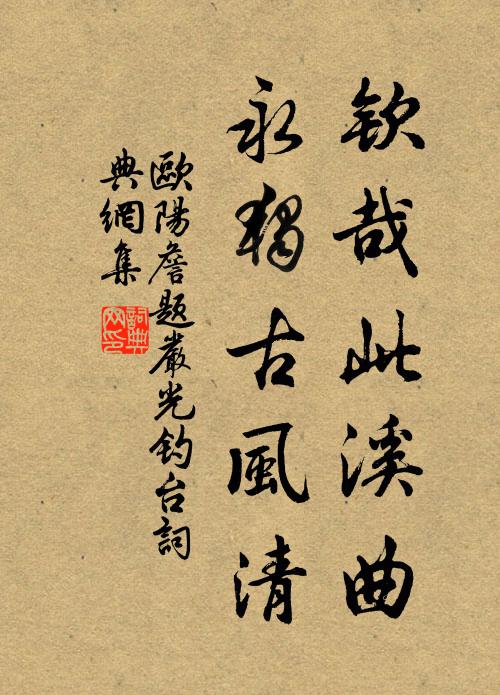 欽哉此溪曲
永獨古風清
歐陽詹題嚴光釣台詞
典網集
詞典
网印